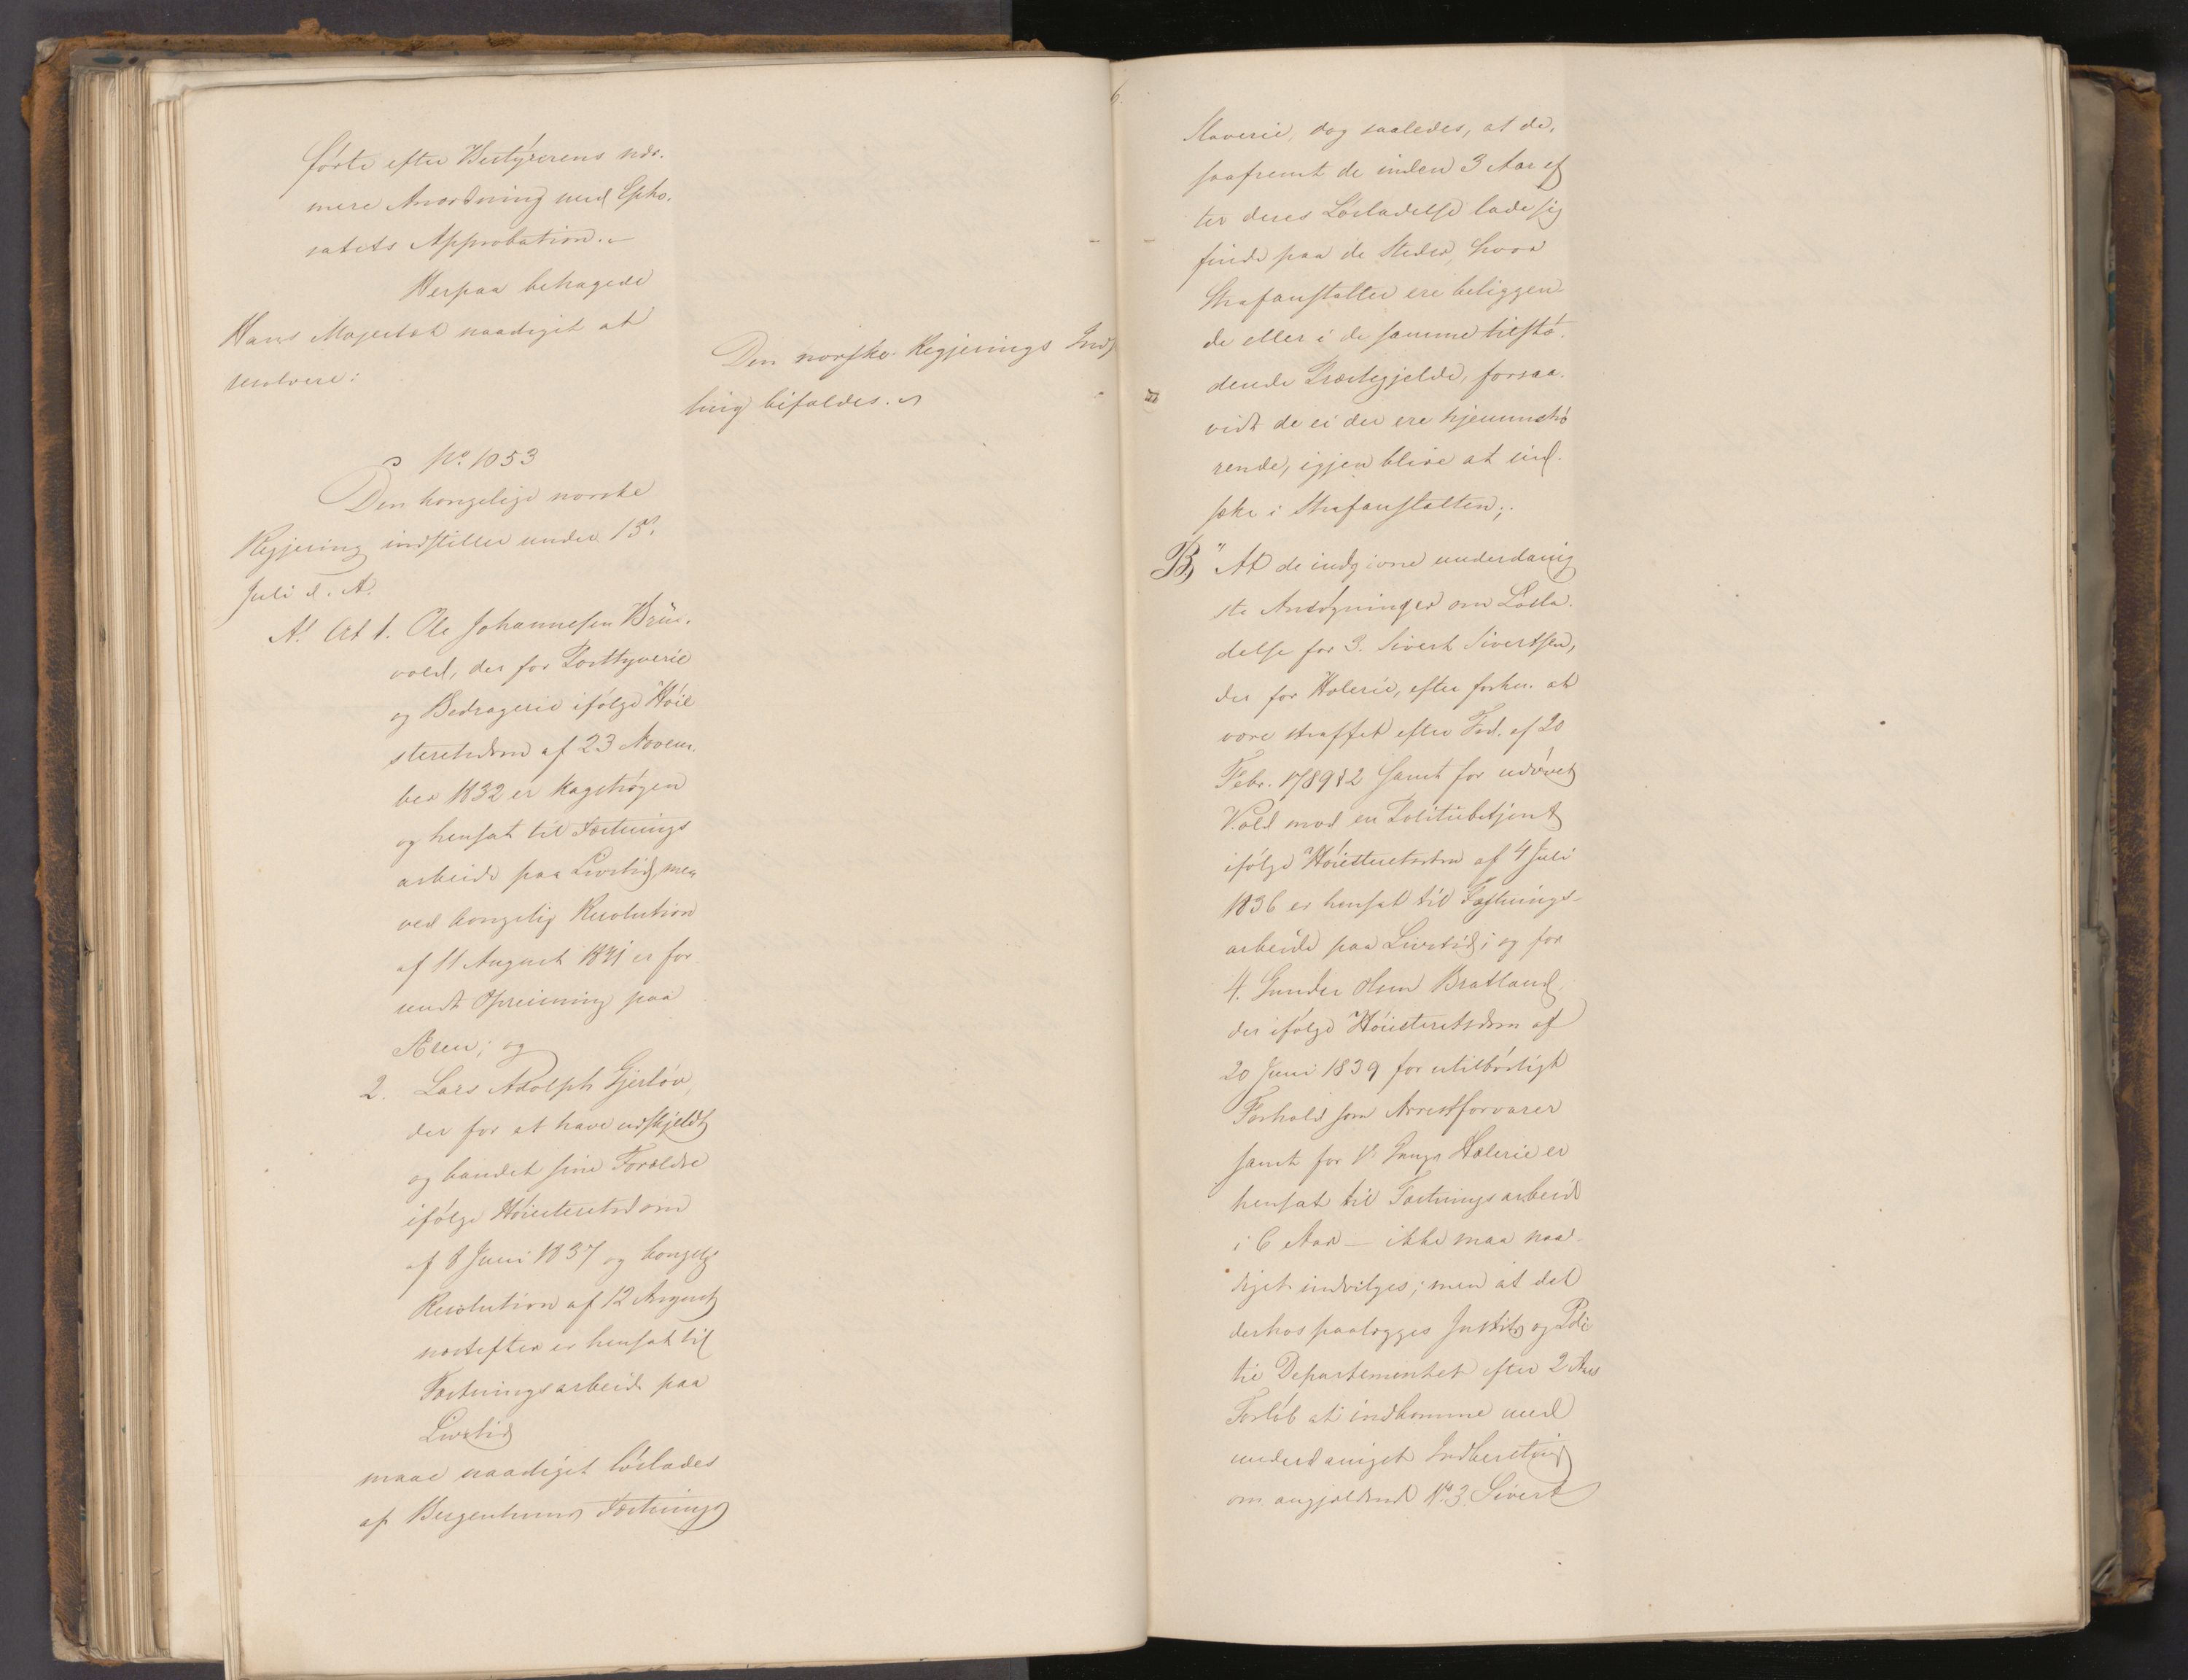 førte efter Bestyrerens nær-
mere Anordning med Epho-
ratets Approbation.
Herpaa behagede
Hans Majestæt naadigst at
resolvere:
Den norske Regjerings Ind
ling bifaldes.
No. 1053
Den kongelige norske
Regjering indstiller under 15.
Juli d. A.
A. At 1. Ole Johannesen
vold, der for
og Bedragerie ifølge Høie
steretsdom af 23 Novem-
ber 1832 er kagstrøgen
og hensat til Fæstnings
arbeide paa Livstid, men
ved kongelig Resolution
af 11 August 1841 er for
undt Opreisning paa
Æren; og
2. Lars Adolph Gjerløv,
der for at have udskjeldt
og bandet sine Forældre
ifølge Høiesteretsdom
af 8 Juni 1837 og kongelig
Resolution af 12 August
næstefter er hensat til
Fæstningsarbeide paa
Livstid
maae naadigst løslades
af Bergenhuus Fæstnings
Slaverie, dog saaledes, at de,
saafremt de inden 3 Aar ef
ter deres Løsladelse lade sig
finde paa de Steder, hvor
Strafanstalter ere beliggen-
de eller i de samme tilstø-
dende Præstegjelde, forsaa-
vidt de ei der ere hjemmehø
rende, igjen blive at ind-
sætte i Strafanstalten;
B, At de indgivne underdanig
ste Ansøgninger om Løsla-
delse for 3. Sivert Sivertsen,
der for Hælerie, efter forhen at
være straffet efter Frd. af 20
Febr. 1789 § 2 samt for udøvet
Vold mod en Politiebetjent
ifølge Høiesteretsdom af 4 Juli
1836 er hensat til Fæstnings-
arbeide paa Livstid; og for
4. Gunder Olsen Bratland,
der ifølge Høiesteretsdom af
20 Juni 1839 for utilbørligt
Forhold som Arrestforvarer
samt for 1. Gangs Hælerie er
hensat til Fæstningsarbeide
i 6 Aar – ikke maa naa-
digst indvilges; men at det
derhos paalægges Justits og Poli
tie Departementet efter 2 Aars
Forløb at indkomme med
underdanigst Indberetning
om angjældende No 3. Sivert